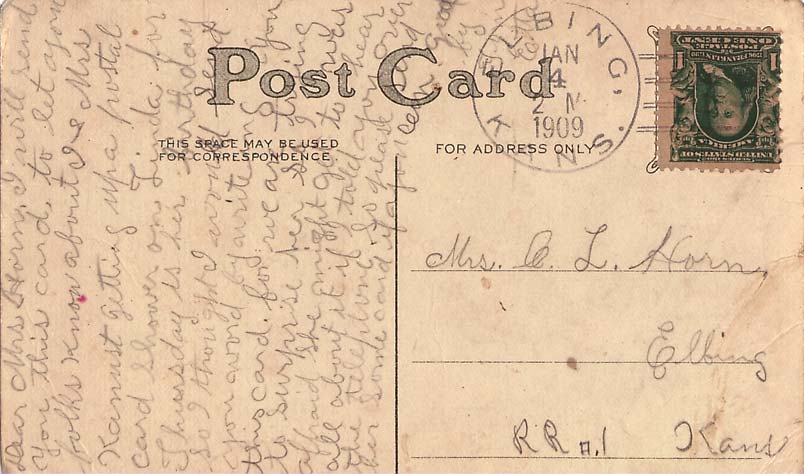 Post Card
THIS SPACE MAY BE USED
FOR CORRESPONDENCE.
FOR ADDRESS ONLY
ELBING, KANS.
JAN
4
2 M
1909
UNITED STATES OF
AMERICA
POSTAGE
ONE CENT
1 1
Mrs. C. L. Horn,
Elbing
RR #.1 Kans
Dear Mrs Horn, I will send
you this card to let you
folks know about I & Mrs
Kamust getting up a postal
card shower on Linda for
Thursday is her birthday
So I thought I would send
you word by writing you
this card. for we are trying
to surprise her so I was
afraid she might get to
all about it if I told you
the telephone. So please
her some card if you